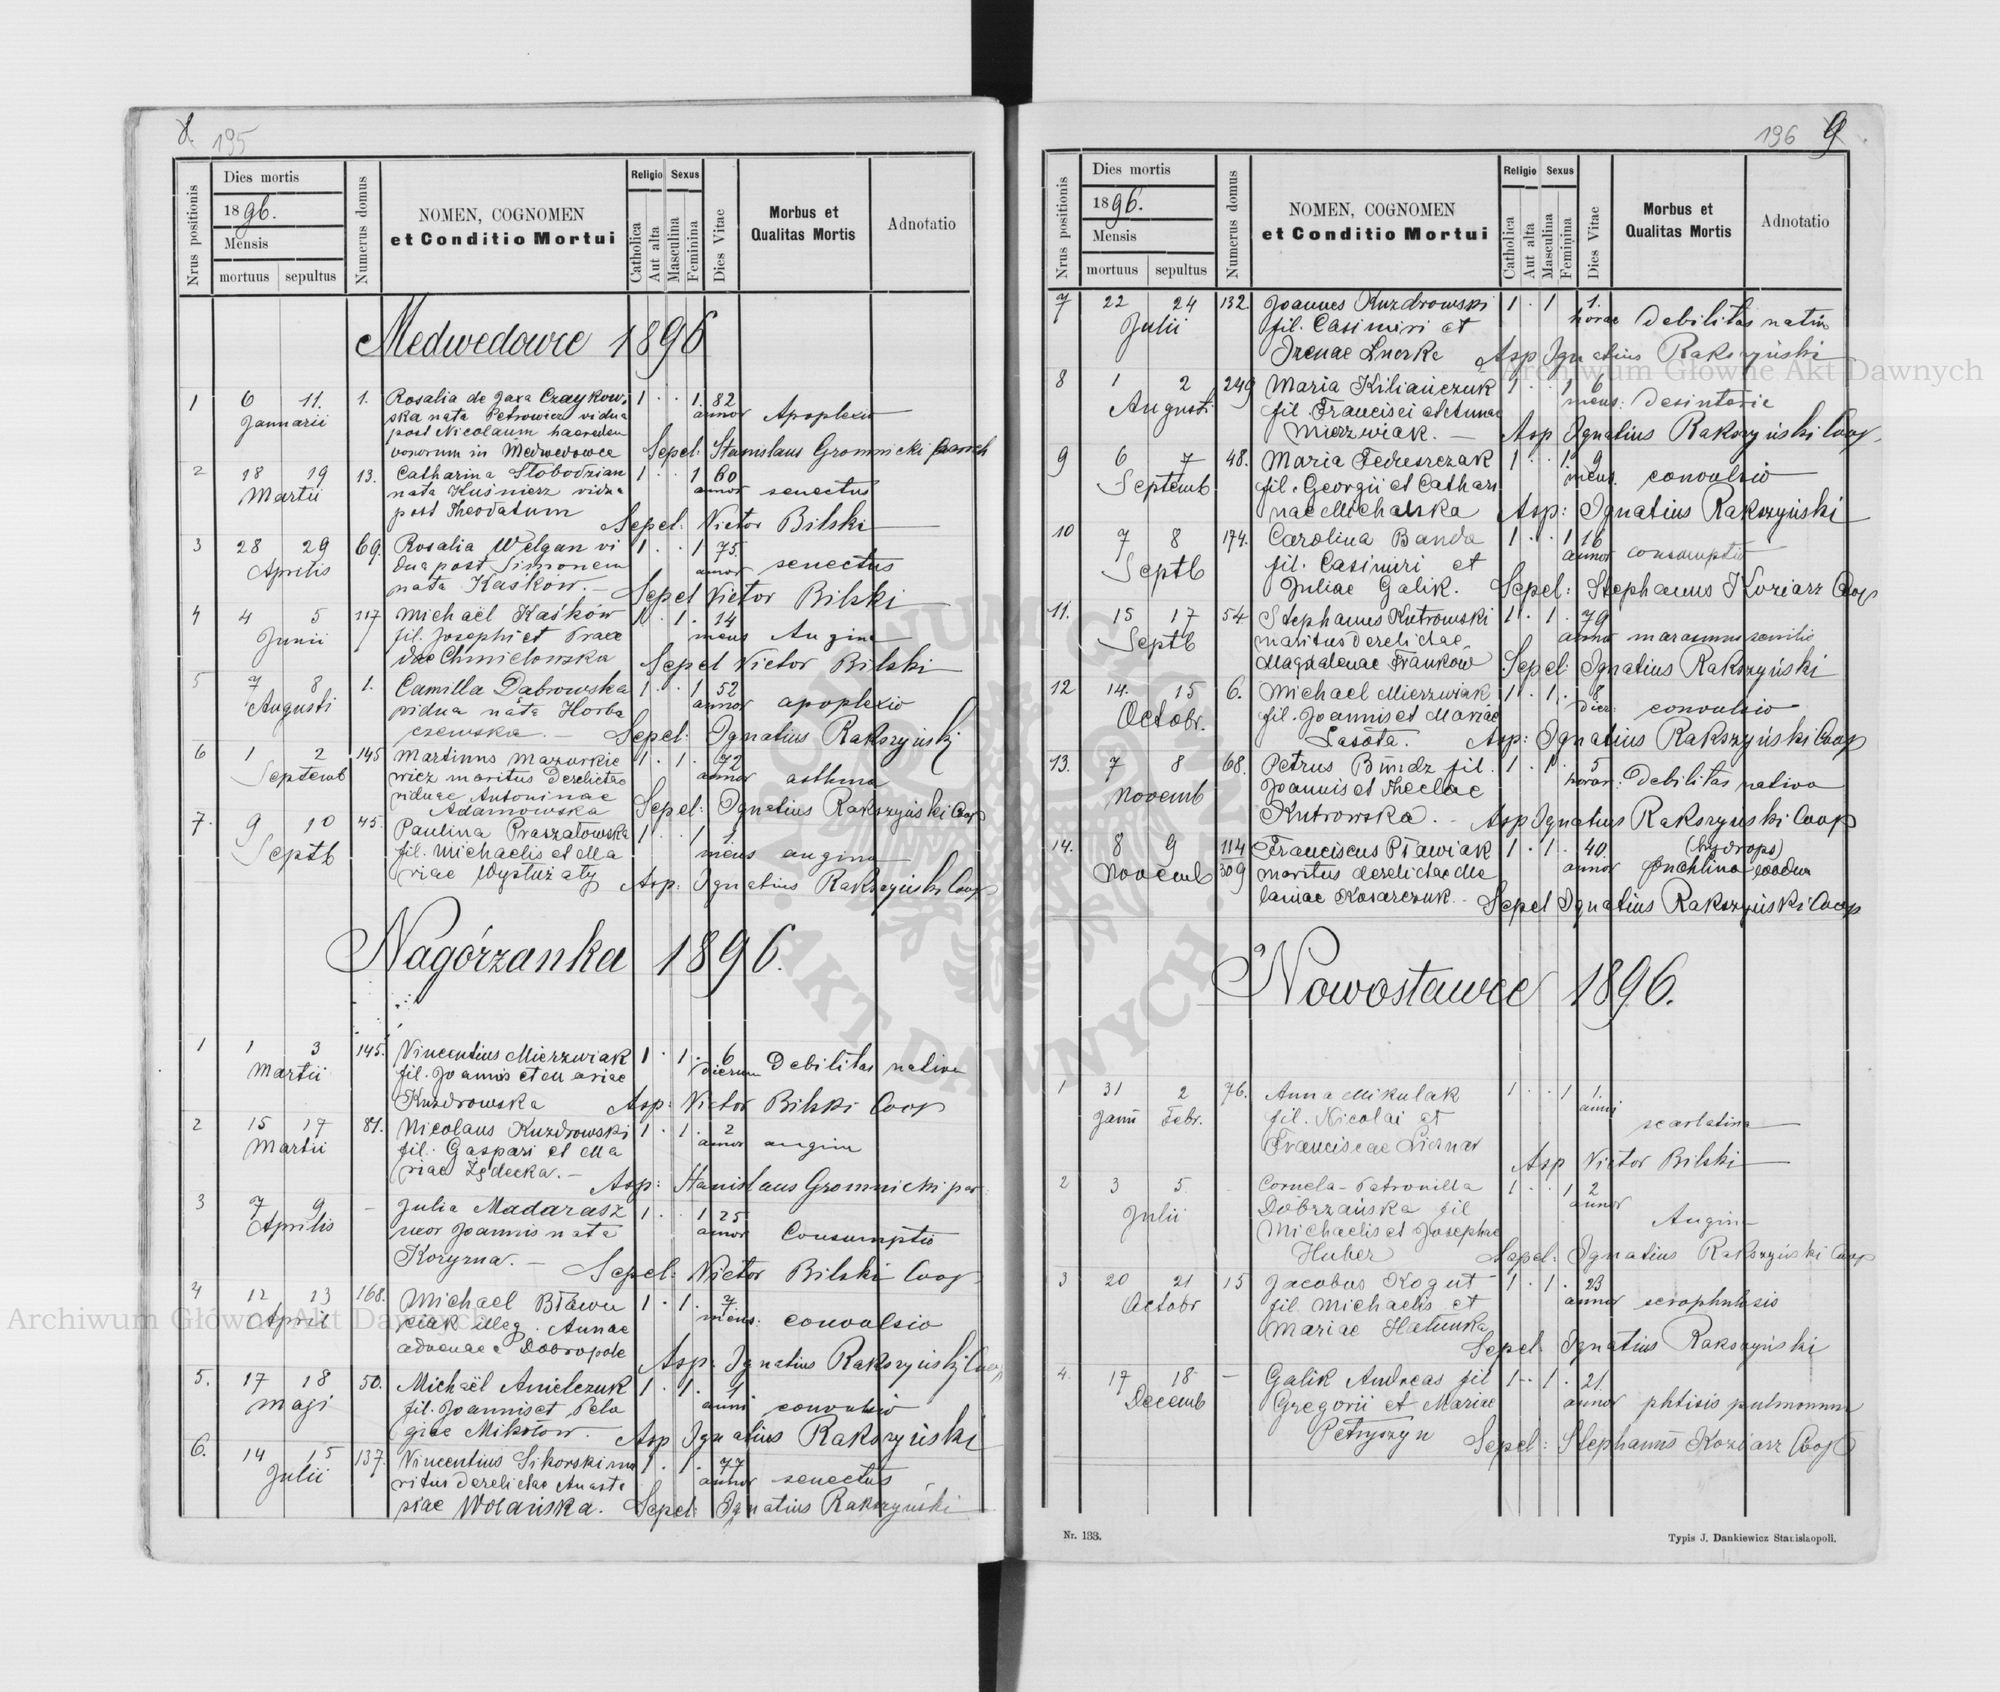 195
Nrus positionis
Dies mortis
1896.
Mensis
mortuus sepultus
Numerus domus
NOMEN, COGNOMEN
et Conditio Mortui
Religio
Catholica
Aut alta
Sexus
Masculina
Feminina
Dies Vitae
Morbus et
Qualitas Mortis
Adnotatio
Medwedowce 1896
1 6 11. 1. Rosalia de Jaxa Czaykow- 1 . . 1. 82
Januarii ska nata Petrowicz vidua annor Apoplexio
post Nicolaum haeredem
bonorum in Medwedowce Sepel: Stanislaus Gromnicki
2 18 19 13. Catharina Słobodzian 1 . . 1 60
Martii nata Kuśnierz vidua annor senectus
post Theodatum Sepel: Victor Bilski
3 28 29 69. Rosalia Welgan vi 1 . . 1 75.
Aprilis dua post Simonem annor senectus
nata Kaśków. Sepel Victor Bilski
4 4 5 117 Michaël Kaśków 1 . 1 . 14
Junii fil. Josephi et Praxe mens Angina
dae Chmielowska Sepel Victor Bilski
5 7 8 1. Camilla Dąbrowska 1 . . 1 52
Augusti vidua nata Horba annor apoplexio
czewska. Sepel: Ignatius Rakszyński
6 1 2 145 Martinus Mazurkie 1 . 1 . 72
Septemb wicz maritus derelictae annor asthma
viduae Antoninae
Adamowska Sepel: Ignatius Rakszyński Coop
7. 9 10 45. Paulina Praszałowska 1 . . 1 1
Septb fil. Michaelis et Ma mens angina
riae Wysłużaty Asp: Ignatius Rakszyński Coop
Nagórzanka 1896.
1 1 3 145. Vincentius Mierzwiak 1 . 1 . 6
Martii fil. Joannis et Mariae dierum Debilitas nativa
Kuzdrowska Asp: Victor Bilski Coop
2 15 17 81. Nicolaus Kuzdrowski 1 . 1 . 2
Martii fil. Gaspari et Ma annor angina
riae Zędecka. Asp: Stanislaus Gromnicki par
3 7 9 – Julia Madarasz 1 . . 1 25
Aprilis uxor Joannis nata annor Consumptio
Koryzna. Sepel: Victor Bilski Coop
4 12 13 168. Michael Bławu 1 . 1 . 7
April ciak illeg. Annae mens: convulsio
advenae e Dobropole Asp: Ignatius Rakszyński Coop
5. 17 18 50. Michaël Anielczuk 1 . 1 . 1
Maji fil. Joannis et Pela anni convulsio
giae Mikołow. Asp Ignatius Rakszyński
6. 14 15 137. Vincentius Sikorski ma 1 . 1 . 77
Julii ritus derelictae Anasta annor senectus
siae Wolańska. Sepel: Ignatius Rakszyński
196 9
Nrus positionis
Dies mortis
1896.
Mensis
mortuus sepultus
Numerus domus
NOMEN, COGNOMEN
et Conditio Mortui
Religio
Catholica
Aut alta
Sexus
Masculina
Feminina
Dies Vitae
Morbus et
Qualitas Mortis
Adnotatio
7 22 24 132. Joannes Kuzdrowski 1 . 1 1.
Julii fil. Casimiri et horae Debilitas nativa
Irenae Asp Ignatius Rakszyński
8 1 2 249 Maria Kiliańczuk 1 . . 1 6
Augusti fil. Francisci et Annae mens: desinterie
Mierzwiak. Asp Ignatius Rakszyński Coop.
9 6 7 48. Maria Fedreszczak 1 . . 1. 9
Septemb fil. Georgii et Cathari mens. convulsio
nae Michalska Asp: Ignatius Rakszyński
10 7 8 174. Carolina Banda 1 . . 1 16
Septb fil. Casimiri et annor consumptio
Juliae Galik. Sepel: Stephanus Koziarz Coop
11. 15 17 54 Stephanus Kutrowski 1 . 1 . 79
Septb maritus derelictae annor marasmus senilis
Magdalenae Franków Sepel: Ignatius Rakszyński
12 14. 15 6. Michael Mierzwiak 1 . 1 . 8
Octobr. fil. Joannis et Mariae dier: convulsio
Lasota. Asp: Ignatius Rakszyński Coop
13. 7 8 68. Petrus fil. 1 . 1 . 5
Novemb Joannis et Theclae horar: Debilitas nativa
Kutrowska. Asp Ignatius Rakszyński Coop
14. 8 9 114 Franciscus Pławiak 1 . 1 . 40. (hydrops)
Novemb 309 maritus derelictae Me annor puchlina wodna
laniae Kosarczuk. Sepel Ignatius Rakszyński Coop
Nowostawce 1896.
1 31 2 76. Anna Mikulak 1 . . 1 1.
Janu Febr. fil. Nicolai et anni scarlatina
Franciscae Asp Victor Bilski
2 3 5 Cornela-Petronilla 1 . . 1 2
Julii Dobrzańska fil annor
Michaelis et Josephae Angina
Huber Sepel: Ignatius Rakszyński Coop
3 20 21 15 Jacobus Kogut 1 . 1 . 23
Octobr fil. Michaelis et annor scrophulosis
Mariae Hałuńka Sepel: Ignatius Rakszyński
4. 17 18 – Galik Andreas fil 1 . 1 . 21.
Decemb Gregorii et Mariae annor phtisis pulmonum
Petryszyn Sepel: Stephanus Koziarz Coop
Nr. 133.
Typis J. Dankiewicz Stanislaopoli.
Archiwum Główne Akt Dawnych
Archiwum Główne Akt Dawnych
ARCHIWUM GŁÓWNE AKT DAWNYCH